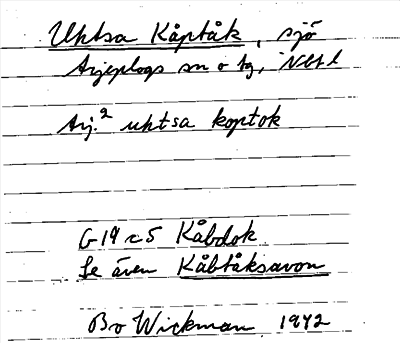 Uhtsa Kåptåk, sjö
Arjeplogs sn o tg, Nbtl
Arj.² uhtsa koptok
G 19 c 5 Kåbdok
Se även Kåbtåksavon
Bo Wickman 1972